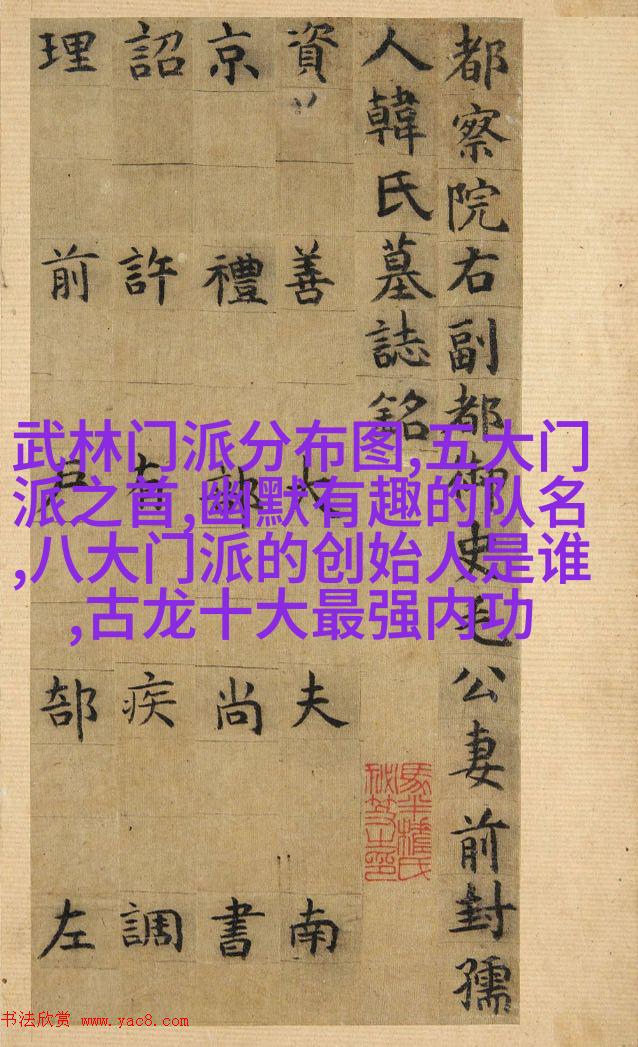 都察院右副都御史毛公妻前封孺
人韓氏墓誌銘
資善大夫南
京禮部尚書
詔許疾調
理前戶部左
武林门派分布图,五大门
派之首,幽默有趣的队名
,八大门派的创始人是谁
,古龙十大最强内功
书法欣赏 www.yac8.com